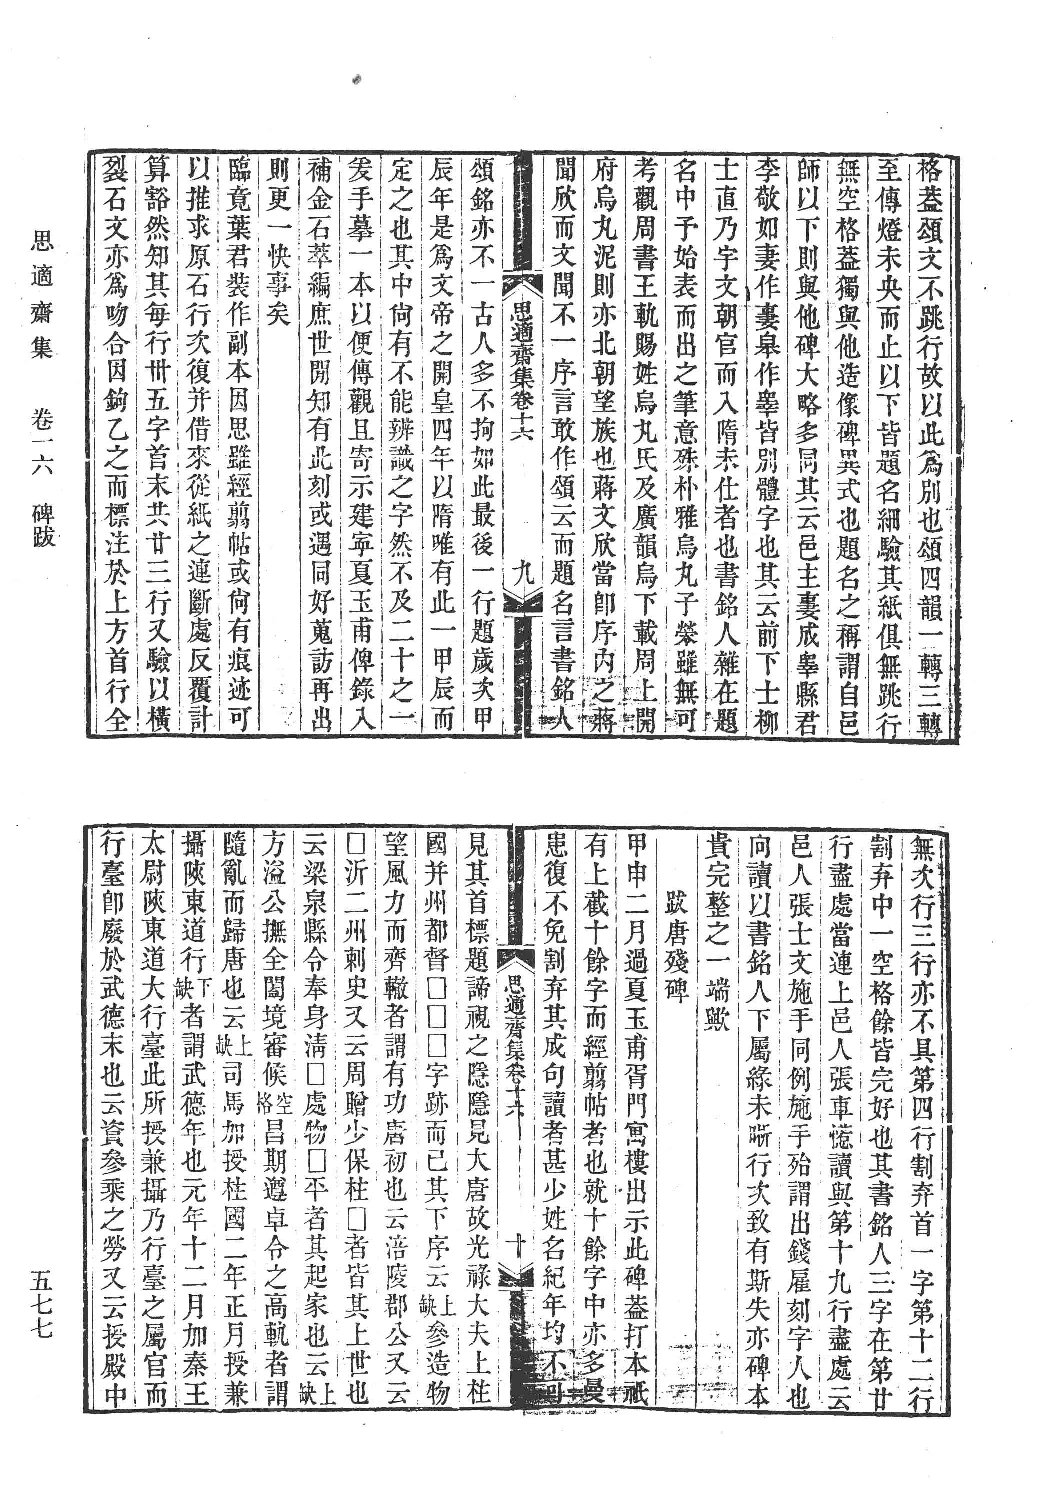 格葢頌文不跳行故以此爲別也頌四韻一轉三轉
至傳燈未央而止以下皆題名細驗其紙俱無跳行
無空格葢獨與他造像碑異式也題名之稱謂自邑
師以下則與他碑大略多同其云邑主婁成睾縣君
李敬如妻作婁皋作睾皆別體字也其云前下士柳
士直乃宇文朝官而入隋未仕者也書銘人雜在題
名中予始表而出之筆意殊朴雅烏丸子榮雖無可
考觀周書王軌賜姓烏丸氏及廣韻烏下載周上開
府烏丸泥則亦北朝望族也蔣文欣當卽序內之蔣
聞欣而文聞不一序言敢作頌云而題名言書銘人
思適齋集卷十六
九
頌銘亦不一古人多不拘如此最後一行題歲次甲
辰年是爲文帝之開皇四年以隋唯有此一甲辰而
定之也其中尙有不能辨識之字然不及二十之一
爰手摹一本以便傳觀且寄示建寧夏玉甫俾錄入
補金石萃編庶世開知有此刻或遇同好蒐訪再出
則更一快事矣
臨竟葉君裝作副本因思雖經翦帖或尙有痕迹可
以推求原石行次復并借來從紙之連斷處反覆計
算豁然知其每行卅五字首末共廿三行又驗以橫
裂石文亦爲吻合因鉤乙之而標注於上方首行全
無次行三行亦不具第四行割弃首一字第十二行
割弃中一空格餘皆完好也其書銘人三字在第廿
行盡處當連上邑人張車憘讀與第十九行盡處云
邑人張士文施手同例施手殆謂出錢雇刻字人也
向讀以書銘人下屬緣未晰行次致有斯失亦碑本
貴完整之一端歟
跋唐殘碑
甲申二月過夏玉甫胥門寓樓出示此碑葢打本祇
有上截十餘字而經翦帖者也就十餘字中亦多曼
患復不免割弃其成句讀者甚少姓名紀年均不可
思適齋集卷十六
十
見其首標題諦視之隱隱見大唐故光祿大夫上柱
國并州都督□□□字跡而已其下序云上缺參造物
望風力而齊轍者謂有功唐初也云涪陵郡公又云
□沂二州刺史又云周贈少保柱□者皆其上世也
云梁泉縣令奉身淸□處物□平者其起家也云上缺
方溢公撫全閩境審候空格昌期遵卓令之高軌者謂
隨亂而歸唐也云上缺司馬加授柱國二年正月授兼
攝陜東道行下缺者謂武德年也元年十二月加秦王
太尉陜東道大行臺此所授兼攝乃行臺之屬官而
行臺卽廢於武德末也云資參乘之勞又云授殿中
思適齋集　卷一六　碑跋
五七七